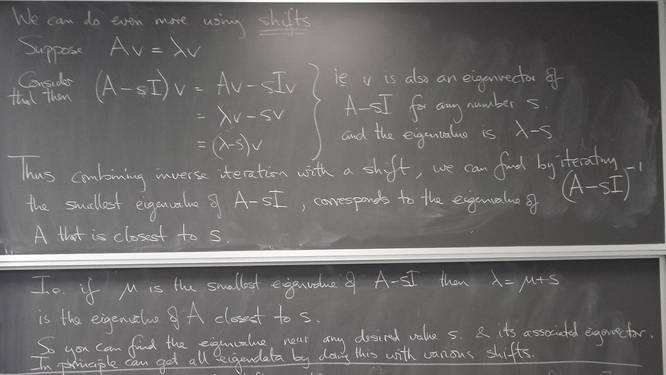 We can do even more using shifts
Suppose Av = λv
Consider that then (A-sI)v = Av - sIv
= λv - sv
= (λ-s)v
ie v is also an eigenvector of
A-sI for any number s.
and the eigenvalue is λ-s
Thus combining inverse iteration with a shift, we can find by iterating (A-sI)⁻¹
the smallest eigenvalue of A-sI, corresponds to the eigenvalue of
A that is closest to s.
I.e. if μ is the smallest eigenvalue of A-sI then λ = μ+s
is the eigenvalue of A closest to s.
So you can find the eigenvalue near any desired value s. & its associated eigenvector.
In principle can get all eigendata by doing this with various shifts.